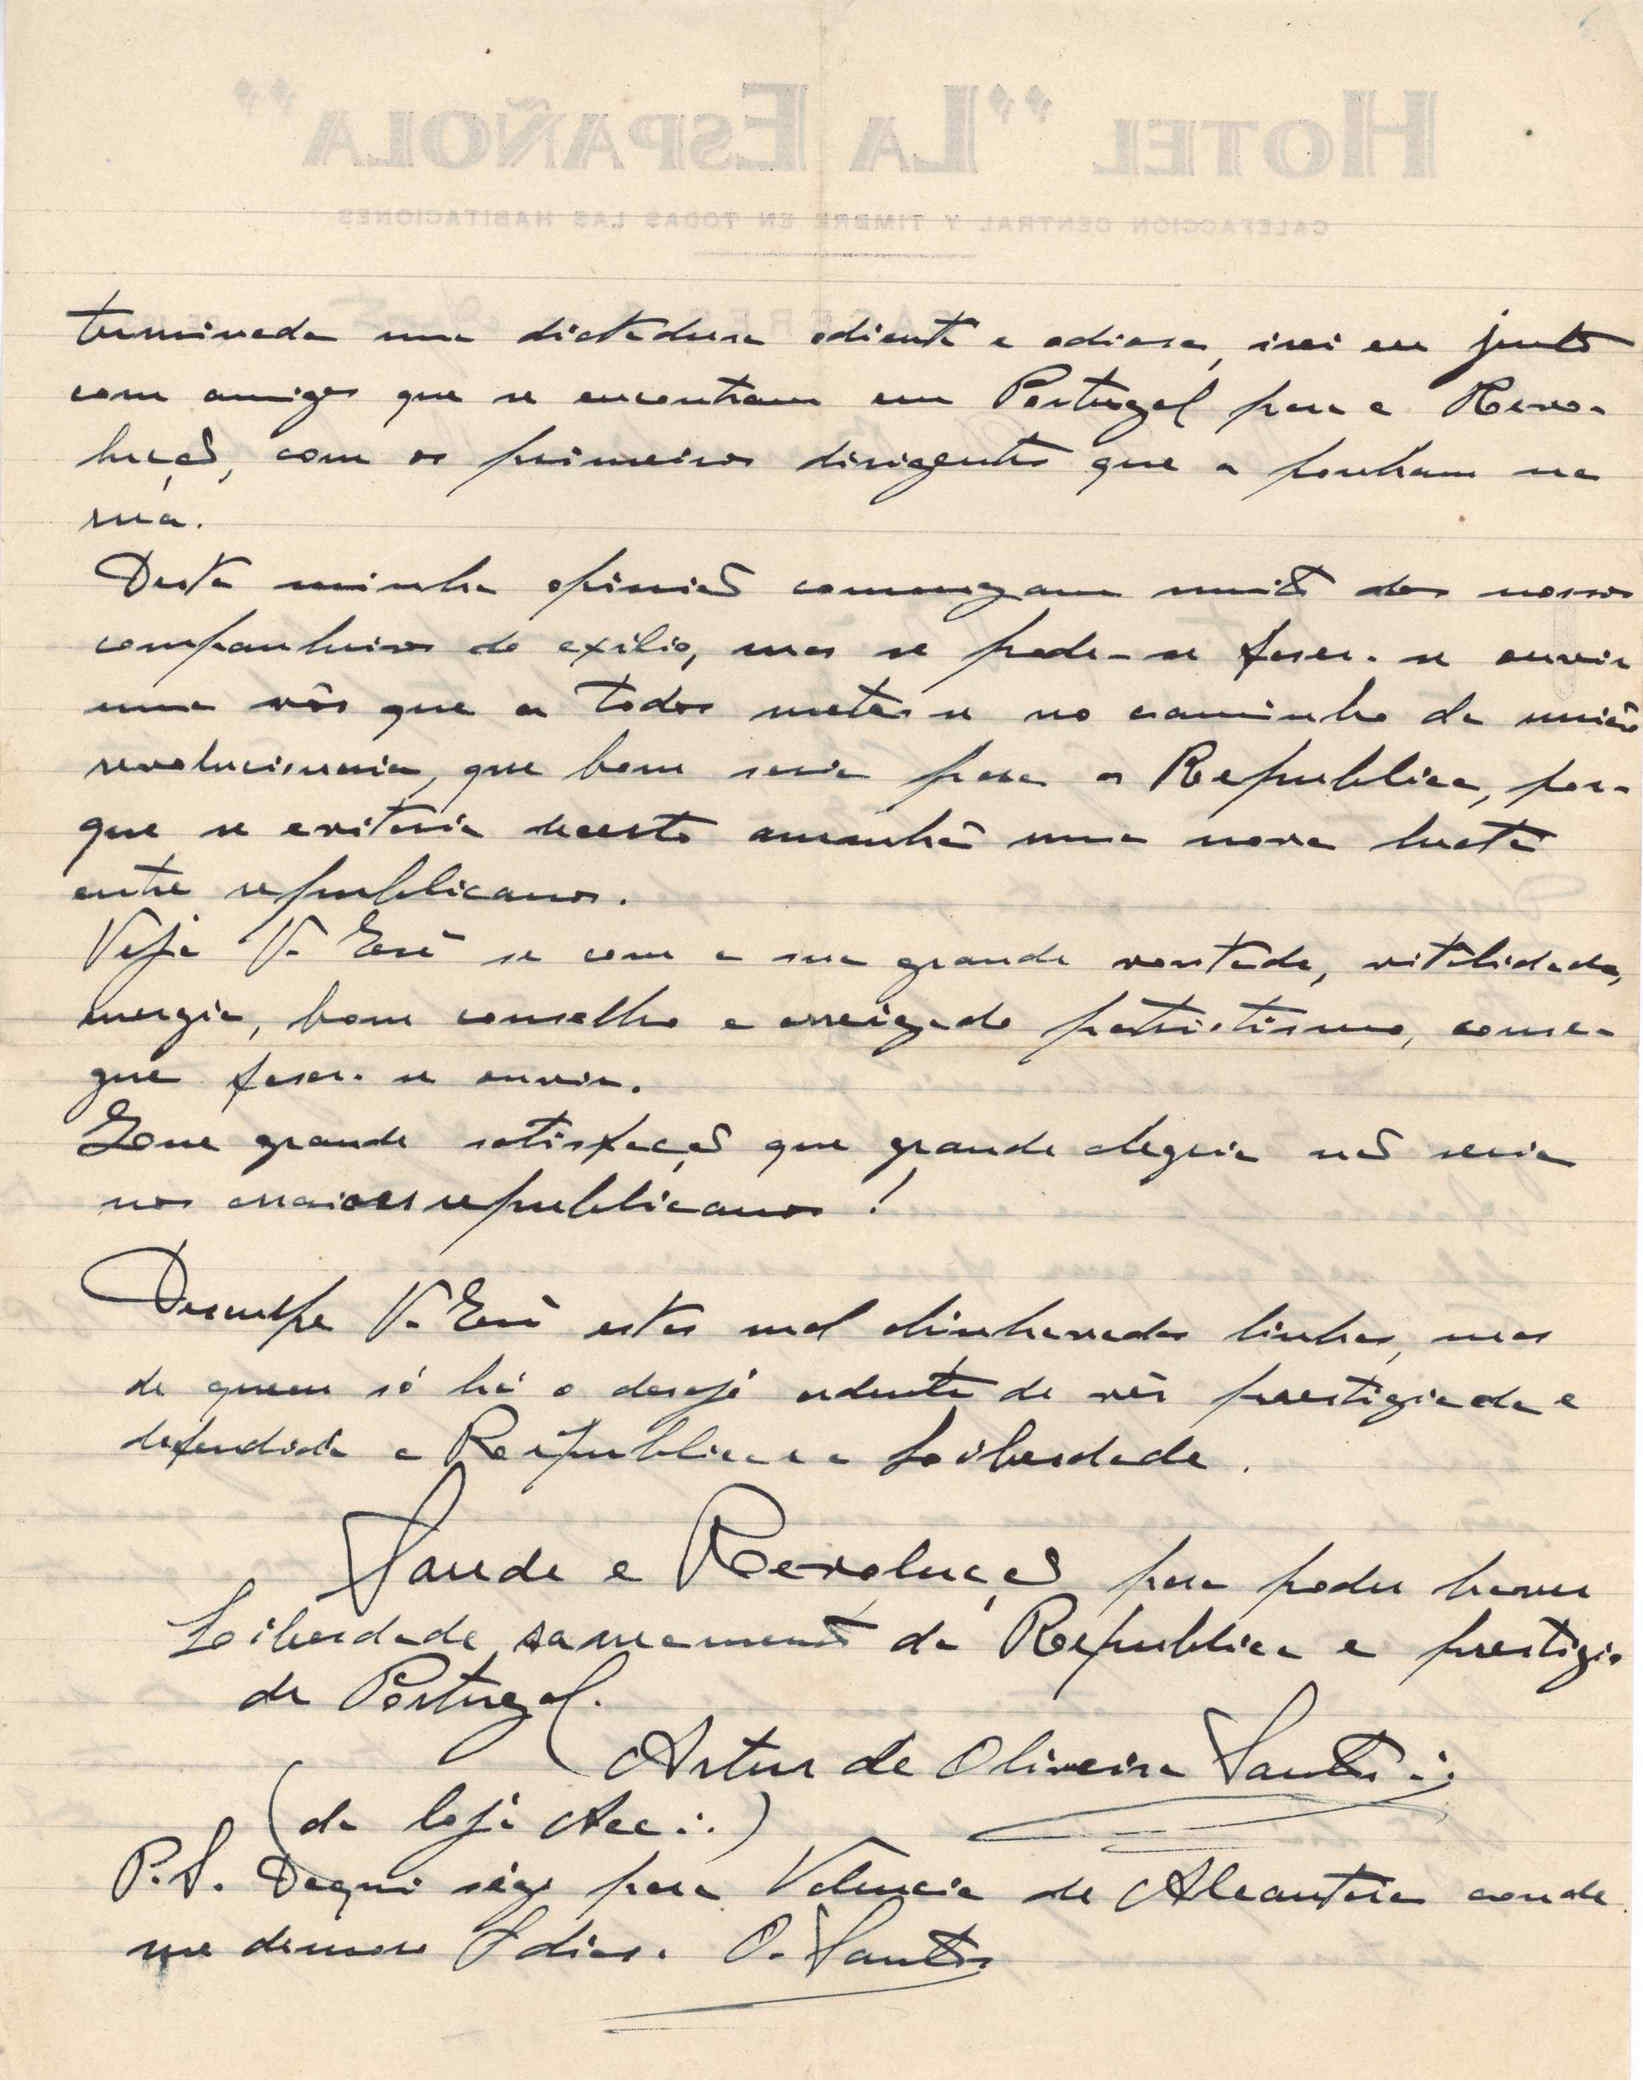 HOTEL "LA ESPAÑOLA"
CALEFACCION CENTRAL Y TIMBRE EN TODAS LAS HABITACIONES
terminada uma dictadura odienta e odiosa, irei eu junto
com amigos que se encontram em Portugal para a Revo-
lução, com os primeiros dirigentes que a ponham na
rua.
Desta minha opinião comungam muito dos nossos
companheiros do exilio, mas se pode-se faser-se ouvir
uma vôs que a todos metesse no caminho da união
revolucionaria, que bom seria para a Republica, por-
que se evitaria amanhã uma nova lucta
entre republicanos.
Veja V. Exciª se com a sua grande vontade, vitalidade,
energia, bom conselho e arreigado patriotismo, conse-
gue faser-se ouvir.
grande satisfação que grande alegria não seria
nos arraiaes republicanos!
Desculpe V. Exciª estas mal alinhavadas linhas, mas
de quem só há o desejo ardente de vêr prestigiada e
defendida a Republica e a Liberdade.
Saude e Revolução para poder haver
Liberdade, saneamento da Republica e prestigio
de Portugal.
Artur de Oliveira Santos ∴
(da loja Acc∴)
P.S. Daqui sigo para Valencia de Alcantara aonde
me demoro 8 dias. O. Santos